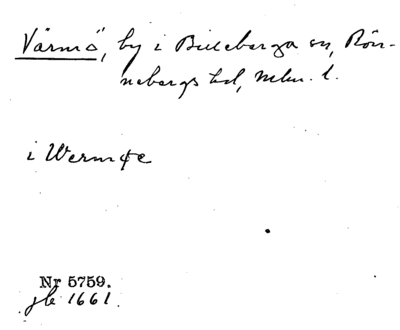 Värmö, by i Billeberga sn, Rön-
nebergs hd, Mlm. l.
i Wermøe
Nr 5759.
jb 1661.